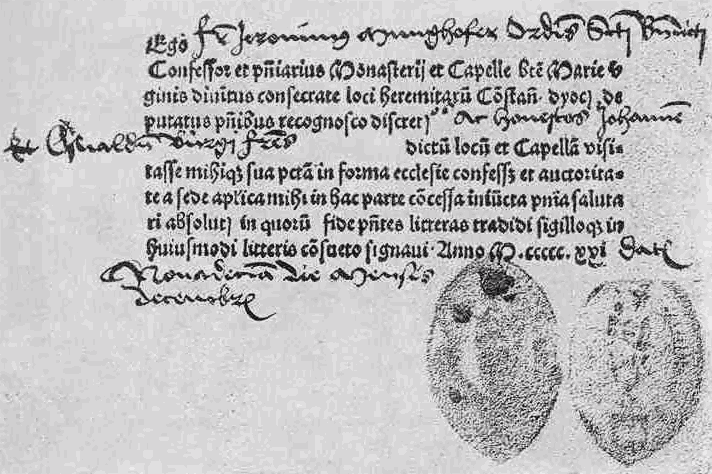 Ego fr Jeronimus Munghofer Ordis Scti Bndicti
Confessor et pniarius Monasterij et Capelle bte Marie v
ginis diuitus consecrate loci heremitarū Cōstañ. dyoc̄ de
putatus pñibus recognosco discret⁹ ac honestos Johannē
et Osualdū Burgi frēs dictū locū et Capellā visi⸗
tasse mihiqꝫ sua pctā in forma ecclesie confessꝫ et auctorita⸗
te a sede aplica mihi in hac parte cōcessa iniūcta pnia saluta
ri absolutꝫ in quorū fide pñtes litteras tradidi sigilloqꝫ in
huiusmodi litteris cōsueto signaui. Anno M.ccccc.xxi Dat
Nona decima die Mensis
decembr